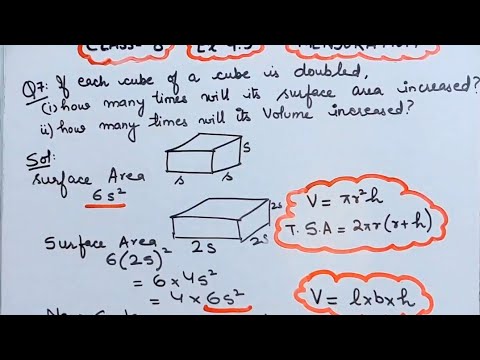 CLASS- 8 Ex 9.3 MENSURATION
Q7: If each cube of a cube is doubled,
(i) how many times will its surface area increased?
ii) how many times will its Volume increased?
Sol:
Surface Area
6s²
s
s
s
V = πr²h
T.S.A = 2πr(r+h)
2s
2s
2s
Surface Area
6(2s)²
= 6 × 4s²
= 4 × 6s²
V = l×b×h